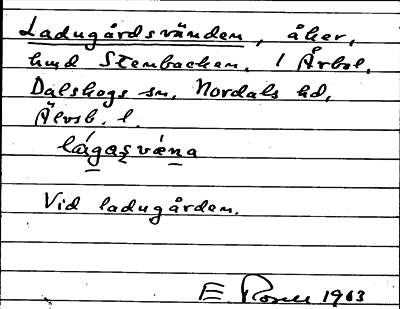 Ladugårdsvänden, åker,
hmd Stenbacken. 1 Årbol,
Dalskogs sn, Nordals hd,
Älvsb. l.
lágasvæna
Vid ladugården.
E. Rosell 1963